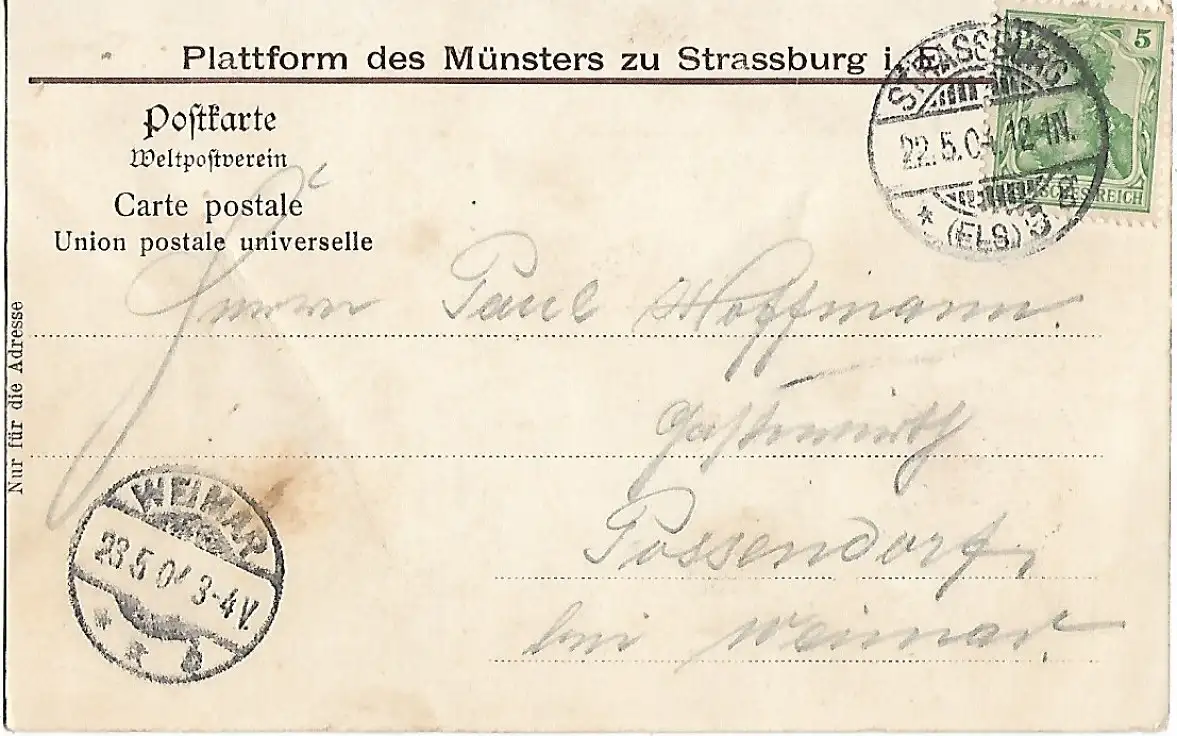 Plattform des Münsters zu Strassburg i. E.
Poſtkarte
Weltpoſtverein
Carte postale
Union postale universelle
5
DEUTSCHES REICH
STRASSBURG
22.5.04. 12-1N.
* (ELS)
Herrn Paul Hoffmann.
Gastwirth
Possendorf,
bei Weimar.
Nur für die Adresse
WEIMAR
23.5.04 3-4V.